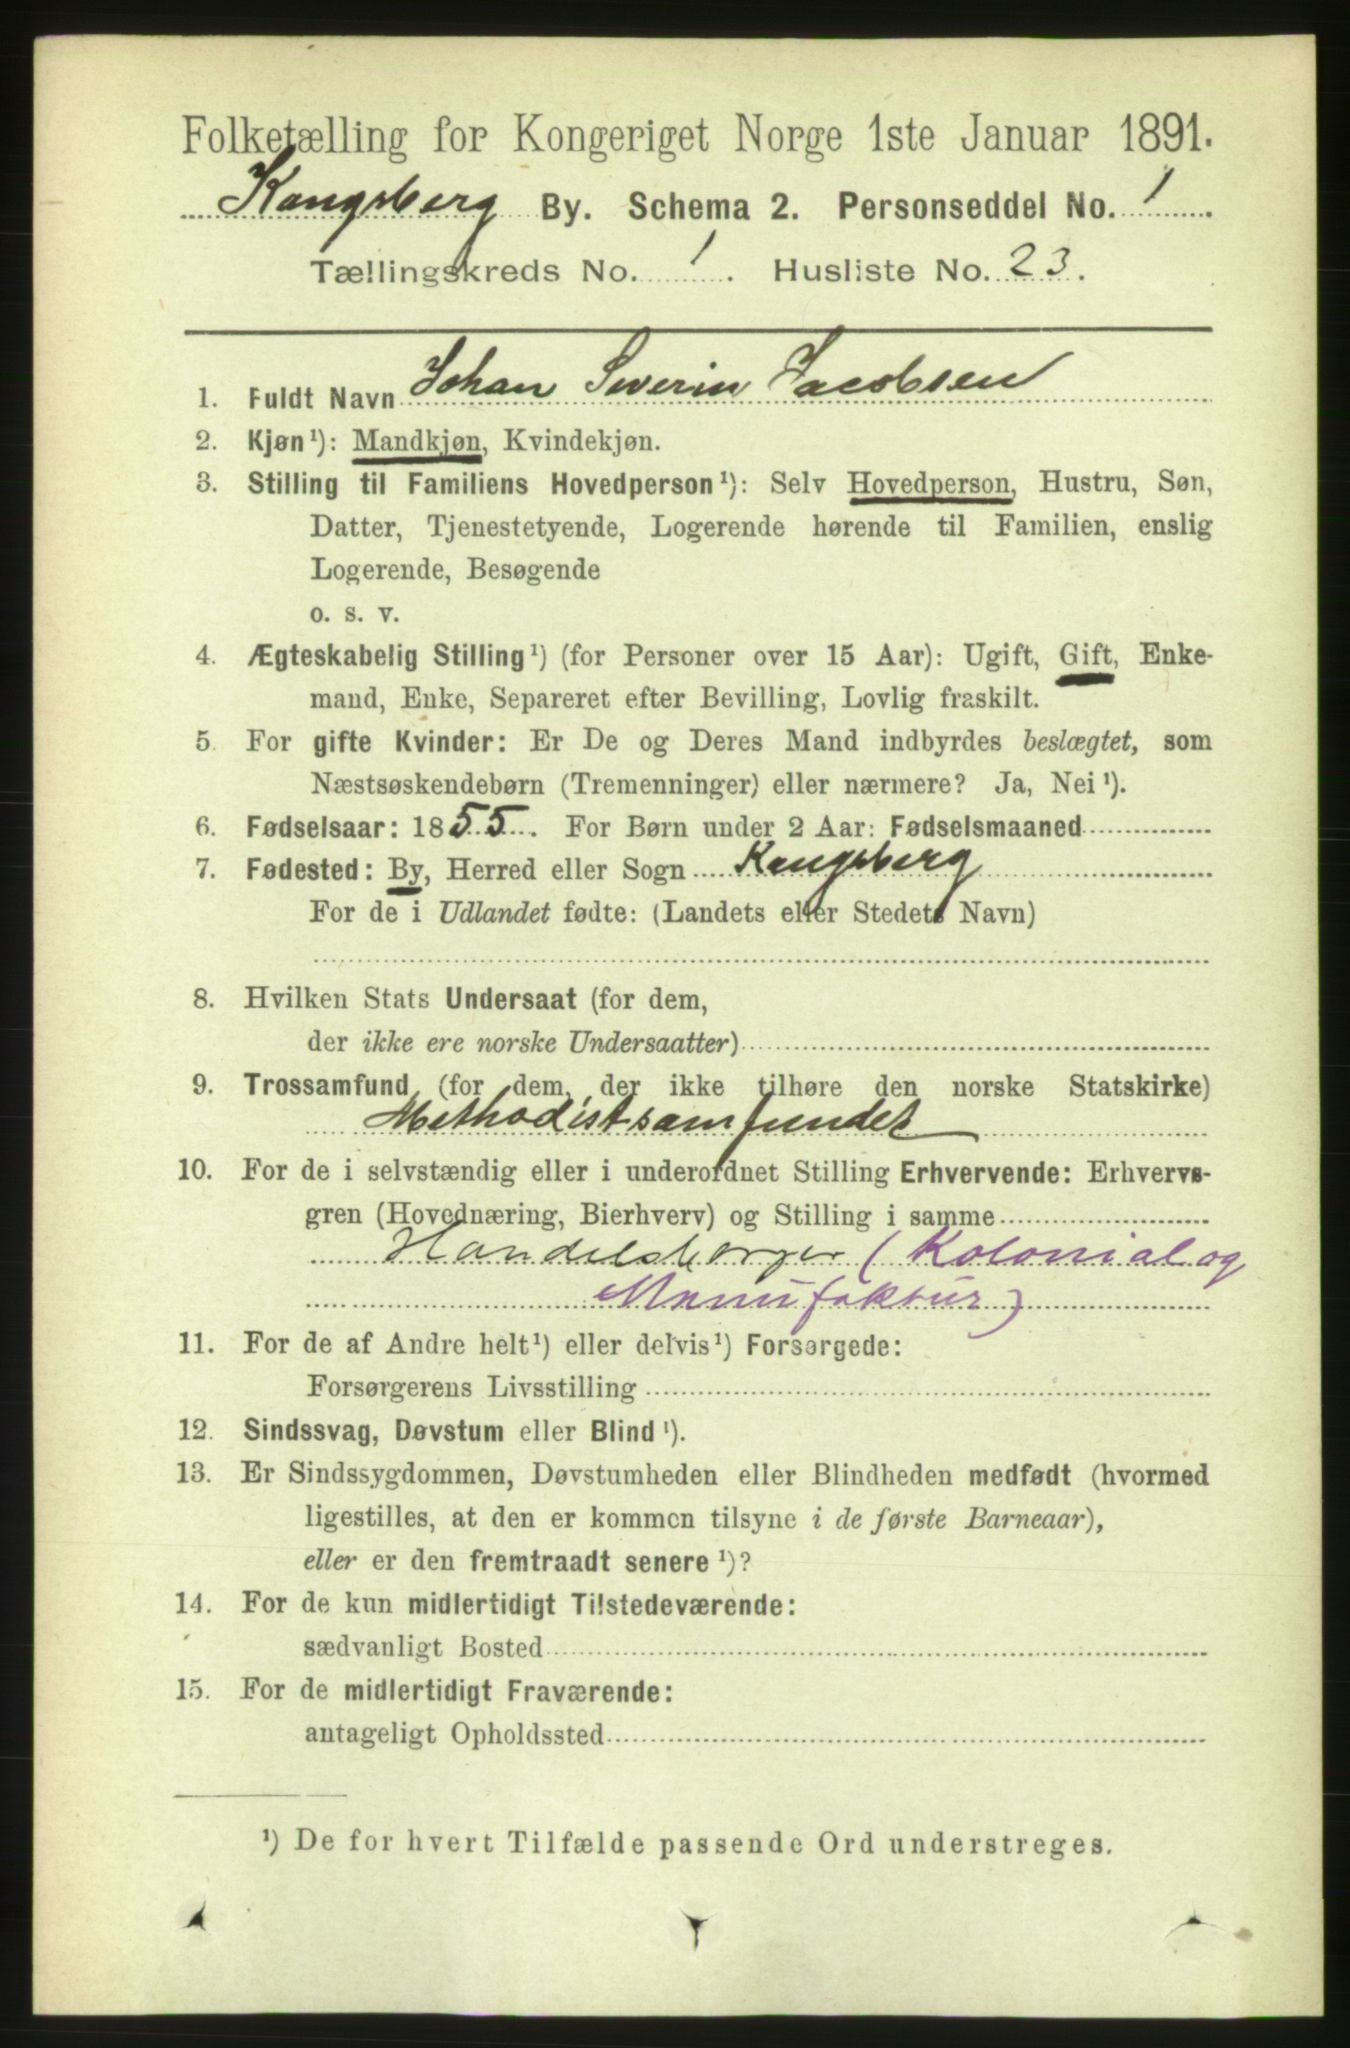 Folketælling for Kongeriget Norge 1ste Januar 1891.
Kongsberg By. Schema 2. Personseddel No. 1
Tællingskreds No. 1. Husliste No. 23.
1. Fuldt Navn Johan Severin Jacobsen
2. Kjøn¹): Mandkjøn, Kvindekjøn.
3. Stilling til Familiens Hovedperson¹): Selv Hovedperson, Hustru, Søn,
Datter, Tjenestetyende, Logerende hørende til Familien, enslig
Logerende, Besøgende
o. s. v.
4. Ægteskabelig Stilling¹) (for Personer over 15 Aar): Ugift, Gift, Enke-
mand, Enke, Separeret efter Bevilling, Lovlig fraskilt.
5. For gifte Kvinder: Er De og Deres Mand indbyrdes beslægtet, som
Næstsøskendebørn (Tremenninger) eller nærmere? Ja, Nei¹).
6. Fødselsaar: 1855. For Børn under 2 Aar: Fødselsmaaned
7. Fødested: By, Herred eller Sogn Kongsberg
For de i Udlandet fødte: (Landets eller Stedets Navn)
8. Hvilken Stats Undersaat (for dem,
der ikke ere norske Undersaatter)
9. Trossamfund (for dem, der ikke tilhøre den norske Statskirke)
Methodistsamfundet
10. For de i selvstændig eller i underordnet Stilling Erhvervende: Erhvervs-
gren (Hovednæring, Bierhverv) og Stilling i samme
Handelsborger (Kolonial og
Manufaktur)
11. For de af Andre helt¹) eller delvis¹) Forsørgede:
Forsørgerens Livsstilling
12. Sindssvag, Døvstum eller Blind¹).
13. Er Sindssygdommen, Døvstumheden eller Blindheden medfødt (hvormed
ligestilles, at den er kommen tilsyne i de første Barneaar),
eller er den fremtraadt senere¹)?
14. For de kun midlertidigt Tilstedeværende:
sædvanligt Bosted
15. For de midlertidigt Fraværende:
antageligt Opholdssted
¹) De for hvert Tilfælde passende Ord understreges.